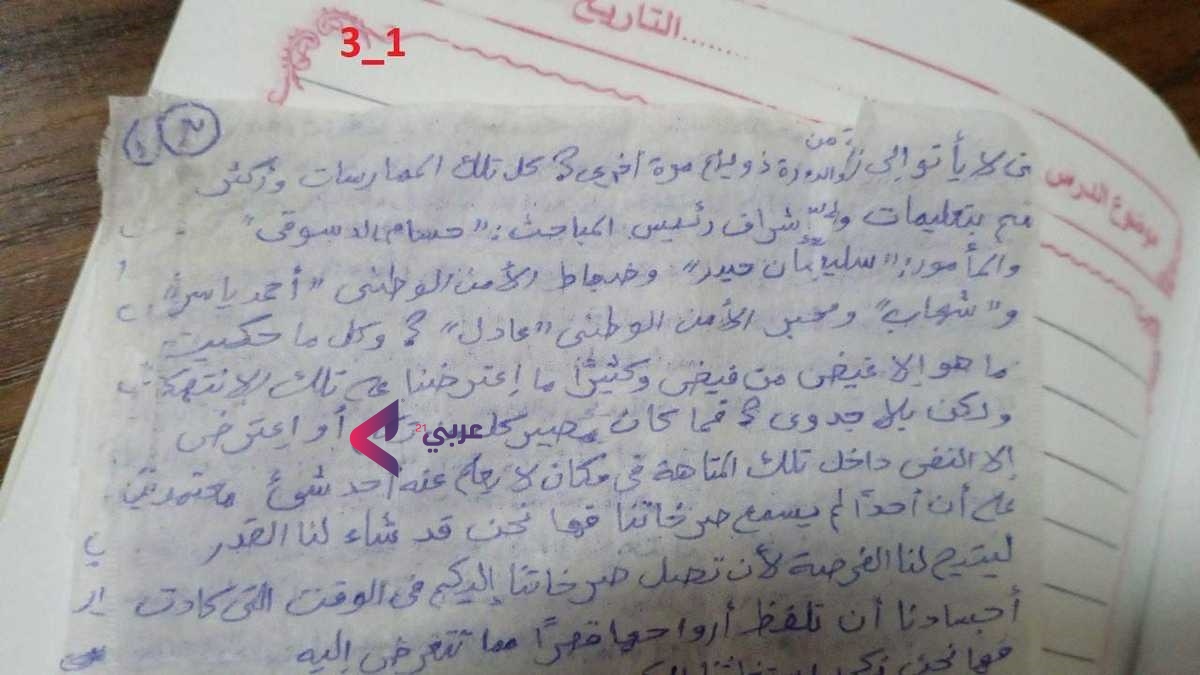 التاريخ........
3_1
موضوع الدرس
لا يأتوا إلى ذويهم مرة أخرى؟ كل تلك الممارسات وأكثر
من
تتم بتعليمات وإشراف رئيس المباحث: "حسام الدسوقى"
والمأمور: "سليمان حيدر" وضباط الأمن الوطنى "أحمد ياسر"
و"شهاب" ومخبر الأمن الوطنى "عادل"؟ وكل ما حكيت
ما هو إلا غيض من فيض وكثيرًا ما إعترضنا على تلك الإنتهكا
ولكن بلا جدوى؟ فما كان مصير كل من أو إعترض
عربي21
إلا النفى داخل تلك المتاهة فى مكان لا يعلم عنه أحد شئ معتمدين
على أن أحدًا لم يسمع صرخاتنا فها نحن قد شاء لنا القدر
ليتيح لنا الفرصة لأن تصل صرخاتنا إليكم فى الوقت التى كادت
أجسادنا أن تلفظ أرواحها قهرًا مما تتعرض إليه
فها نحن